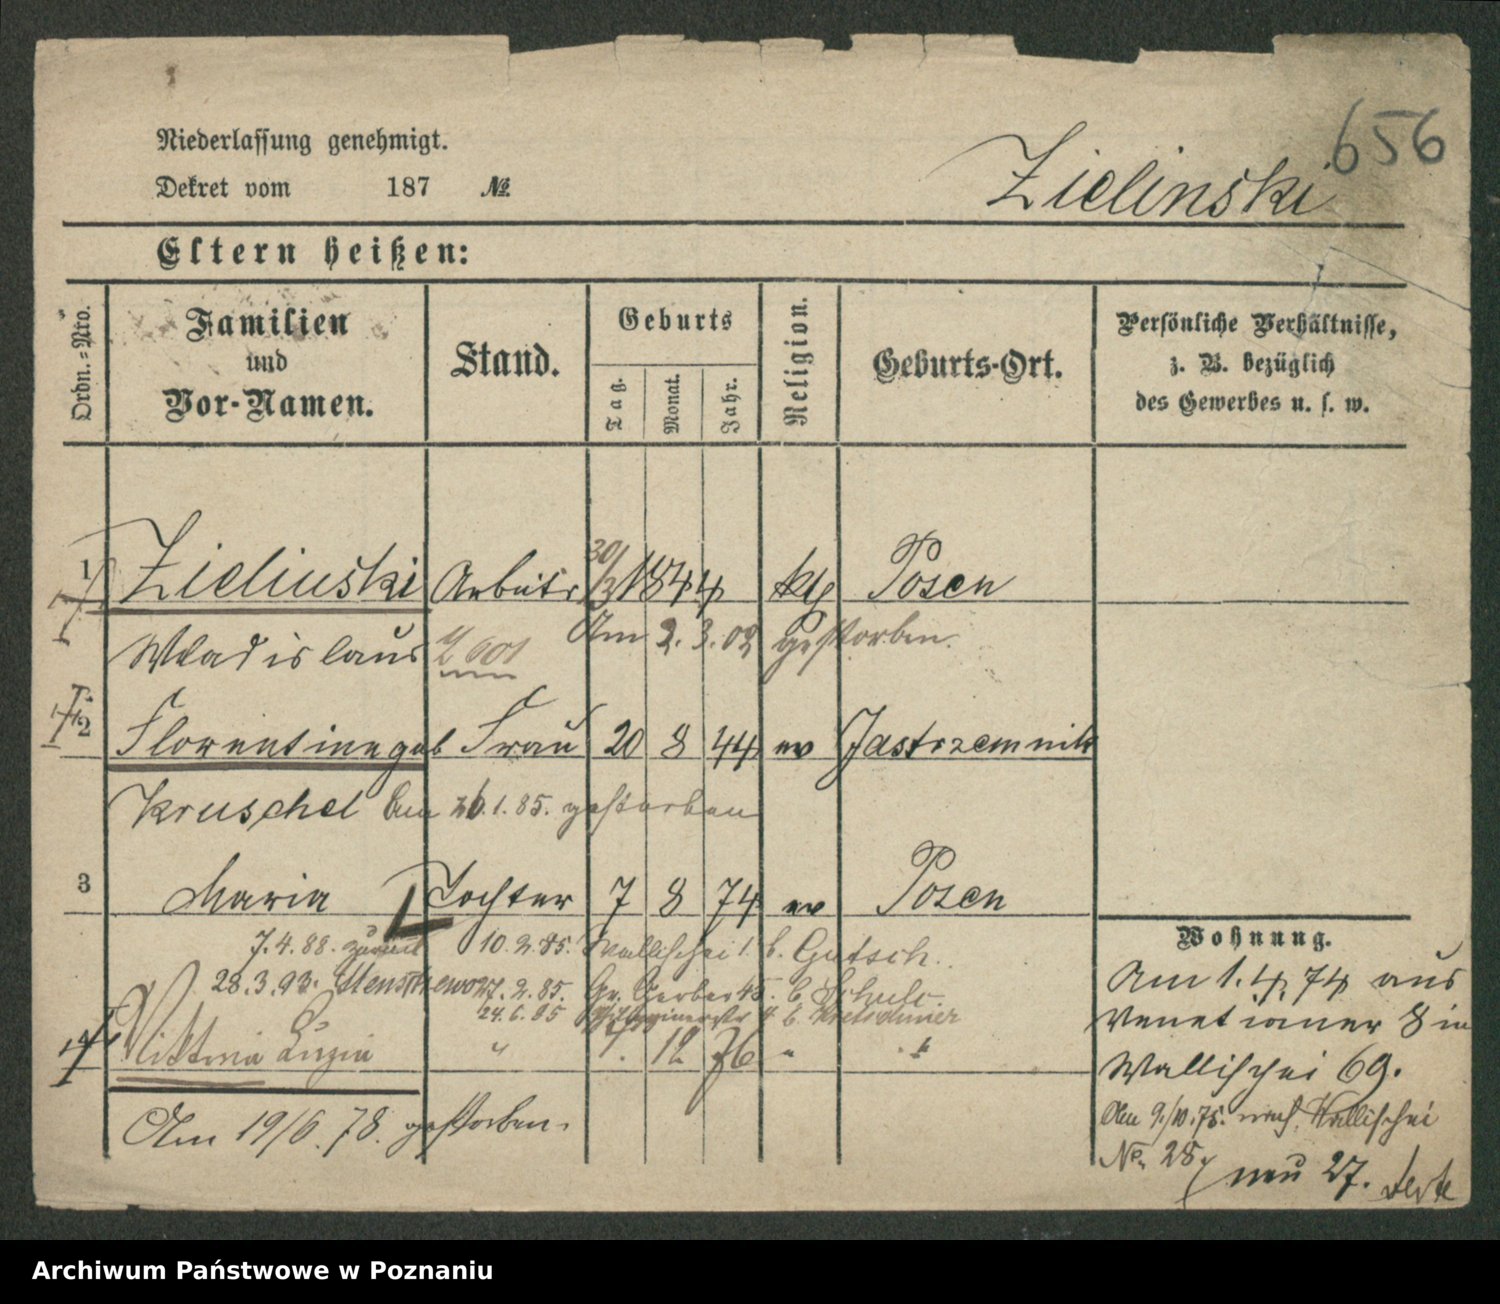 656
Niederlassung genehmigt.
Zielinski
Dekret vom 187 №
Eltern heißen:
Ordn.-Nro.
Familien
und
Vor-Namen.
Stand.
Geburts
Tag.
Monat.
Jahr.
Religion.
Geburts-Ort.
Persönliche Verhältnisse,
z. B. bezüglich
des Gewerbes u. s. w.
1 Zielinski Arbeiter 30/3 1844 kth Posen
Wladislaus Am 2. 3. 02 gestorben.
2 Florentine geb Frau 20 8 44 ev Jastrzemnik
Kruschel Am 26.1.85. gestorben
3 Maria Tochter 7 8 74 ev Posen
7.4.88. zurück 10.2.85. Wallischei 1. b. Gutsch.
28.3.93. 27.2.85. Gr. Gerber 45. b. Schulz
24.6.85 4 b. Kretschmer
4 Viktoria Luzia " 1. 12 76 " "
Am 19/6.78. gestorben.
Wohnung.
Am 1.4.74 aus
Venetianer 8 in
Wallischei 69.
Am 9./10.75. nach Wallischei
No. 28. neu 27.
Archiwum Państwowe w Poznaniu